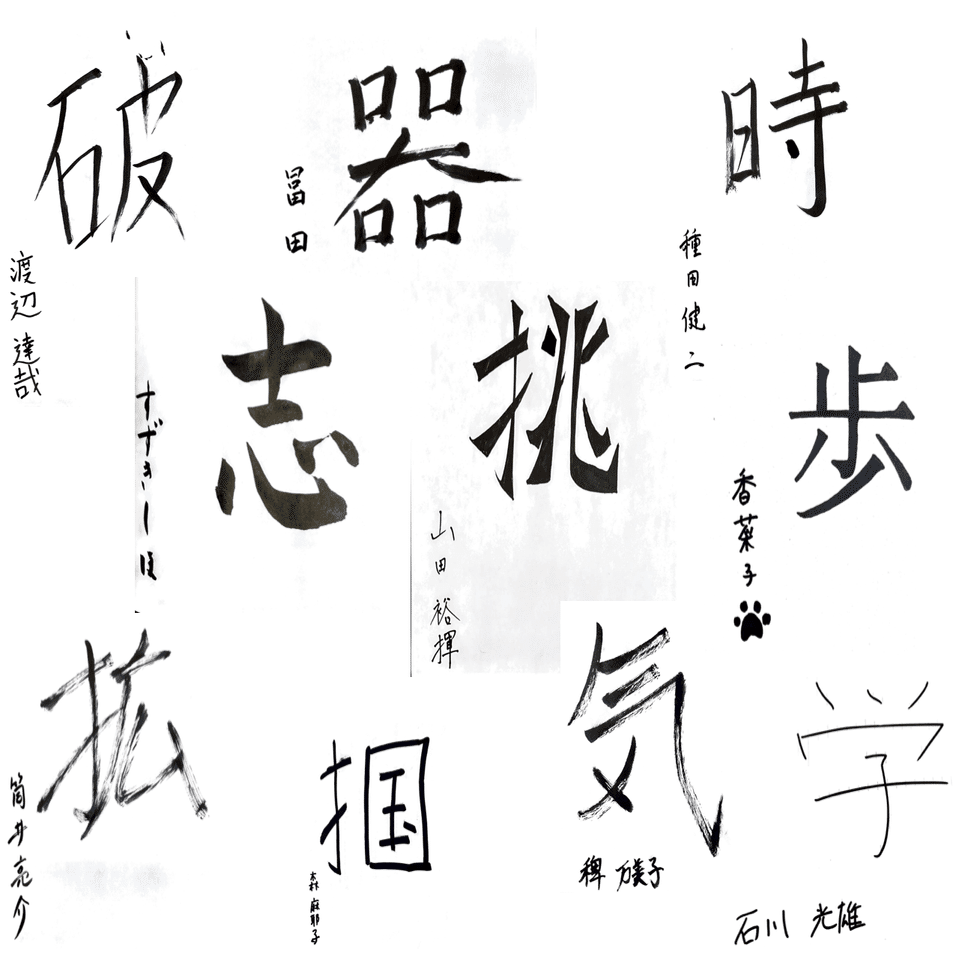 破
渡辺 達哉
器
冨田
時
種田健二
志
すずきしほ
挑
山田裕揮
歩
香菜子
拡
筒井亮介
掴
森 麻耶子
気
稗 万美子
学
石川 光雄